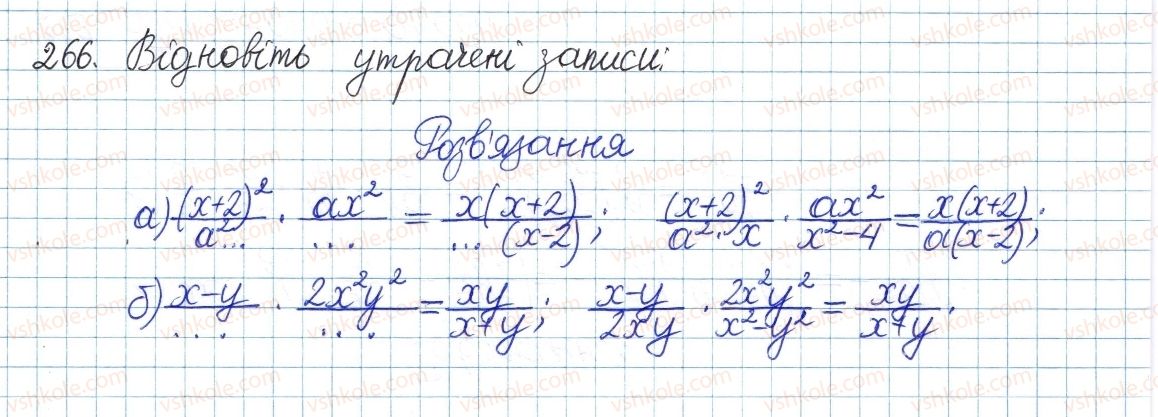 266. Відновіть утрачені записи:
Розв'язання
а) (x+2)²/a²... · ax²/.... = x(x+2)/...(x-2); (x+2)²/a²·x · ax²/x²-4 = x(x+2)/a(x-2);
б) x-y/... · 2x²y²/... = xy/x+y; x-y/2xy · 2x²y²/x²-y² = xy/x+y.